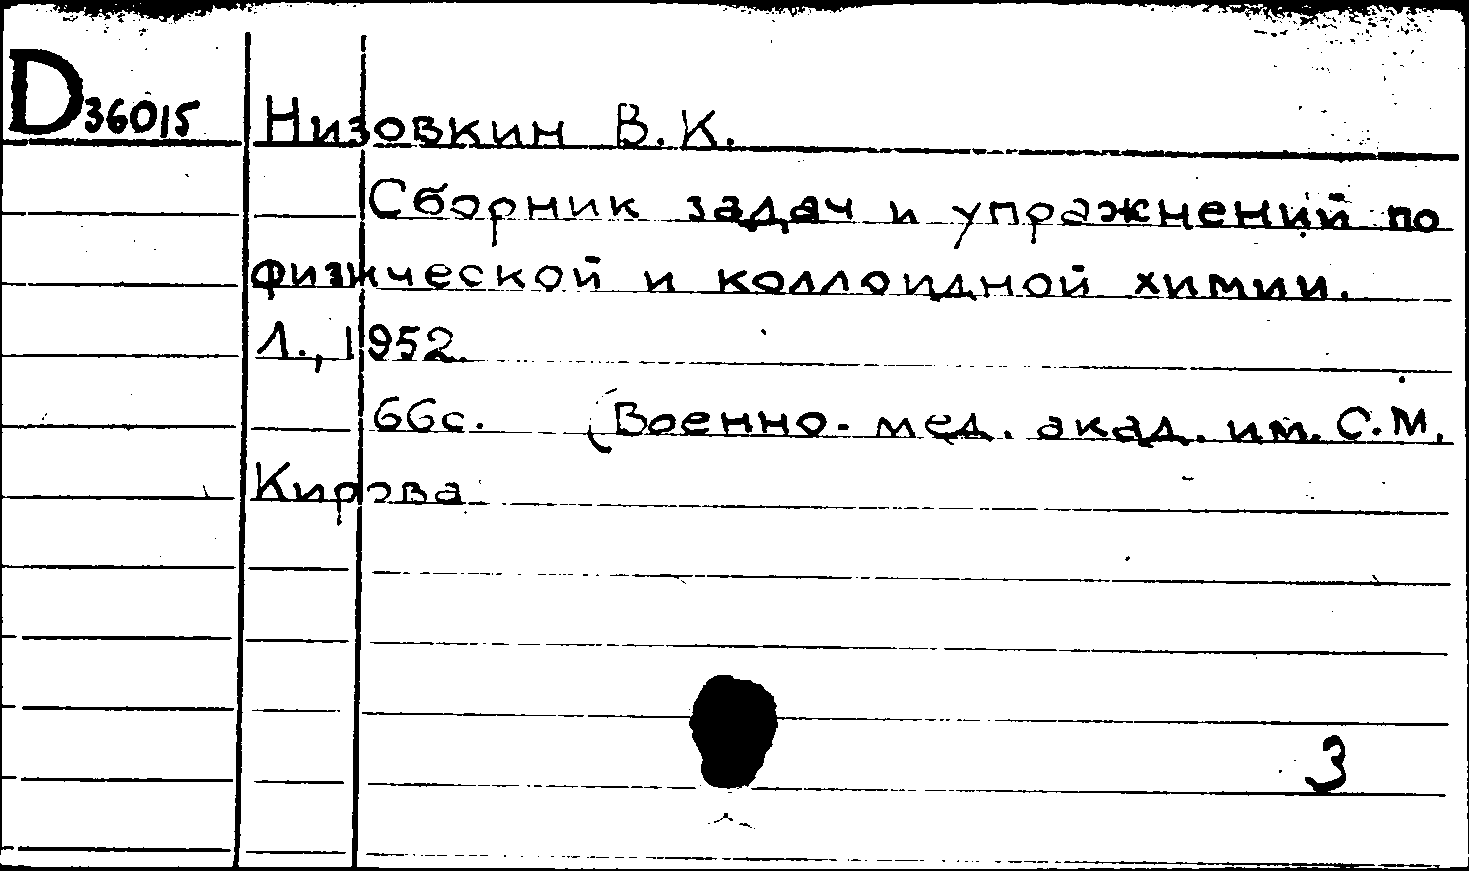 D36015 Низовкин В.К.
Сборник задач и упражнений по
физической и коллоидной химии.
Л., 1952.
66с. (Военно-мед. акад. им. С.М.
Кирова
3